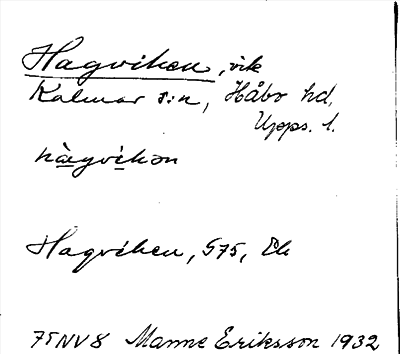 Hagviken, vik
Kalmar s:n, Håbo hd,
Upps. l.
hàgvìkən
Hagviken, S75, Ek
75NV8 Manne Eriksson 1932